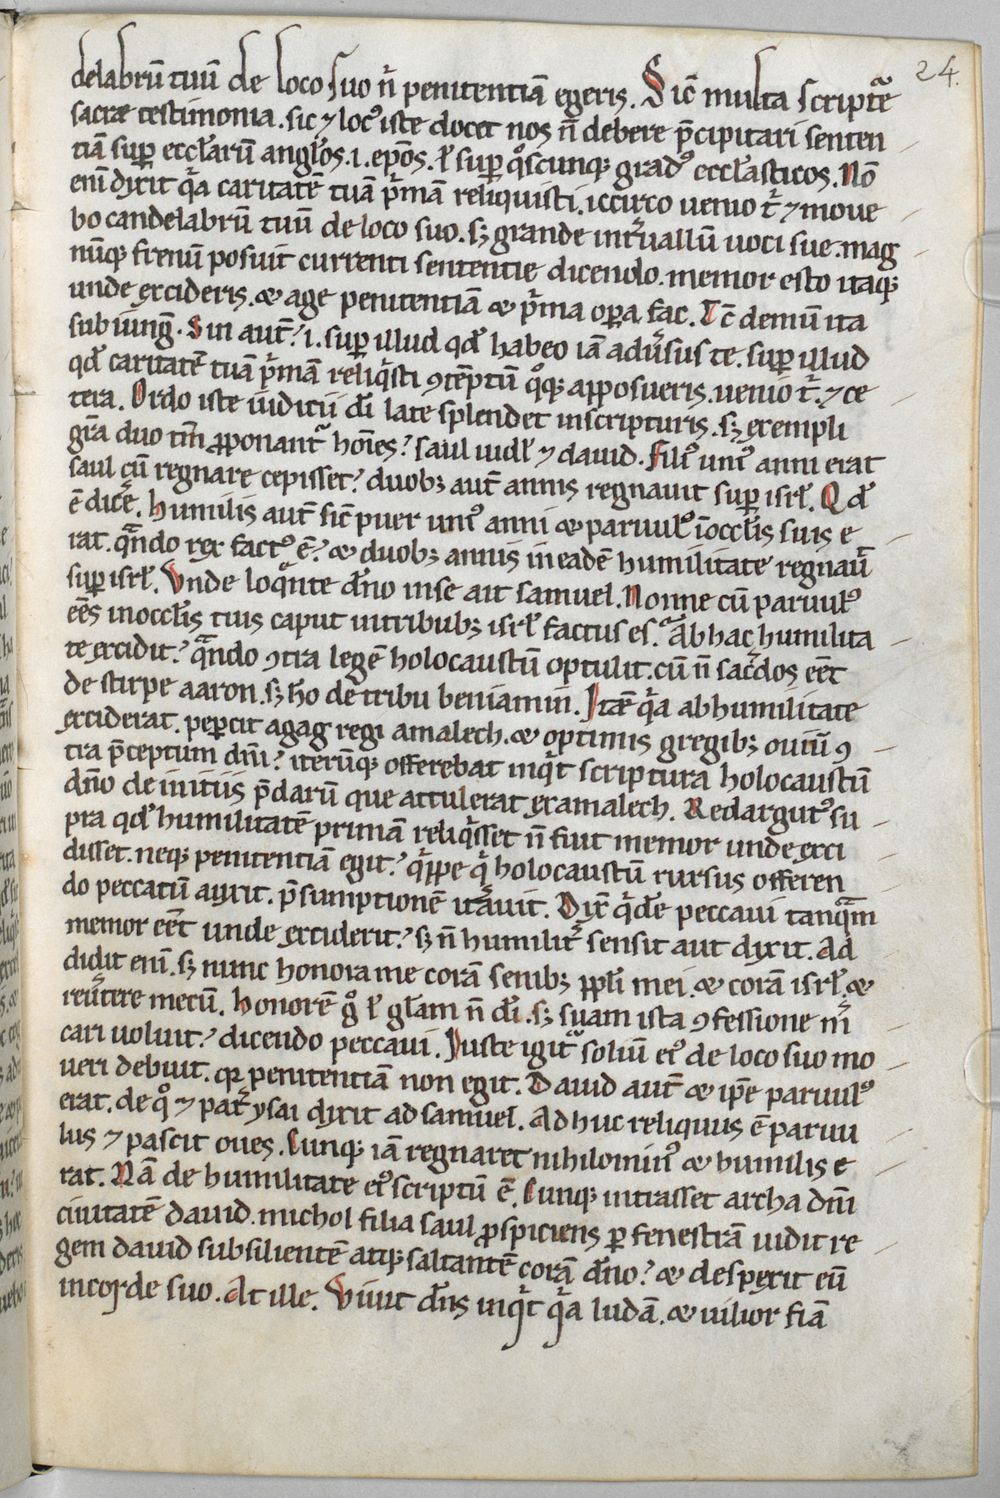 24.
delabrū tuū de loco suo ñ penitentiā egeris. Sic̄ multa scriptr̄e
sacræ testimonia. sic ⁊ locꝰ iste docet nos n̄ debere p̄cipitari senten
tiā suꝑ eccl̄arū angl̄os .i. ep̄os. ł suꝑ qͦscunqꝫ gradꝰ eccl̄asticos. Nō
eni dixit qͥa caritatē tuā pͥmā reliquisti. iccirco uenio tͥ ⁊ moue
bo candelabrū tuū de loco suo. sꝫ grande int̾uallū uoci sue. mag
nūqꝫ frenū posuit currenti sententie dicendo. memor esto itaqꝫ
unde excideris. & age penitentiā & pͥma opera fac. Tc̄ demū ita
subiunḡ. Sin aut̄? .i. suꝑ illud qd̄ habeo iā adu̾sus te. suꝑ illud
qd̄ caritatē tuā pͥmā reliqͥsti ꝯtēptū qͦqꝫ apposueris. uenio tͥ. ⁊ ce
tera. Ordo iste iudicii dī late splendet in scripturis. sꝫ exempli
gr̄a duo tm̄ ꝓponantᷣ hoīes? saul uidł ⁊ dauid. Filiꝰ uniꝰ anni erat
saul cū regnare cepisset? duobꝫ aut̄ annis regnauit suꝑ isrł. Qd̄
ē dicr̄e. humilis aut̄ sic̄ puer uniꝰ anni & paruulꝰ ī occl̄is suis e
rat. qᷓndo rex factꝰ ē? & duobꝫ annis in eadē humilitate regnauͭ
suꝑ isrł. Unde loqͣnte dn̄o in se ait samuel. Nonne cū paruulꝰ
eēs in occl̄is tuis caput in tribubꝫ isrł factus es? Ab hac humilita
te excidit? qᷓndo ꝯtra legē holocaustū optulit. cū n̄ sac̾dos eēt
de stirpe aaron. sꝫ hō de tribu beniamin. Itē qͥa ab humilitate
exciderat. peꝑcit agag regi amalech. & optimis gregibꝫ ouiū ꝯ
tra p̄ceptum dn̄i? iterūqꝫ offerebat inqͥt scriptura holocaustū
dn̄o de initiis p̄darū que attulerat ex amalech. Redargutꝰ su
pra qd̄ humilitatē primā reliqͥsset n̄ fuit memor unde exci
disset. neqꝫ penitentiā egit? qͥppe qͥ holocaustū rursus offeren
do peccatū auxit. p̄sumptionē it̾auit. Dix̄ qͥdē peccaui tanqᷓm
memor eēt unde exciderit? sꝫ n̄ humilit̾ sensit aut dixit. Ad
didit eni. sꝫ nunc honora me corā senibꝫ ppł̄i mei. & corā isrł. &
reu̾tere mecū. honorē gͦ ł gl̄am n̄ dī. sꝫ suam ista ꝯfessione m̾
cari uoluit? dicendo peccaui. Iuste igitᷣ soliū eiꝰ de loco suo mo
ueri debuit. qꝛ penitentiā non egit. Dauid aut̄ & ip̄e paruulꝰ
erat. de qͦ ⁊ pat̾ ysai dixit ad samuel. Adhuc reliquus ē paruu
lus ⁊ pascit oues. Cunqꝫ iā regnaret nihilominꝰ & humilis e
rat. Nā de humilitate eiꝰ scriptū ē. Cunqꝫ intrasset archa dn̄i
ciuitatē dauid. michol filia saul ꝓspiciens ꝑ fenestrā uidit re
gem dauid subsilientē atqꝫ saltantē corā dn̄o? & despexit eū
in corde suo. At ille. Uiuit dn̄s inqͥt qͥa ludā. & uilior fiā